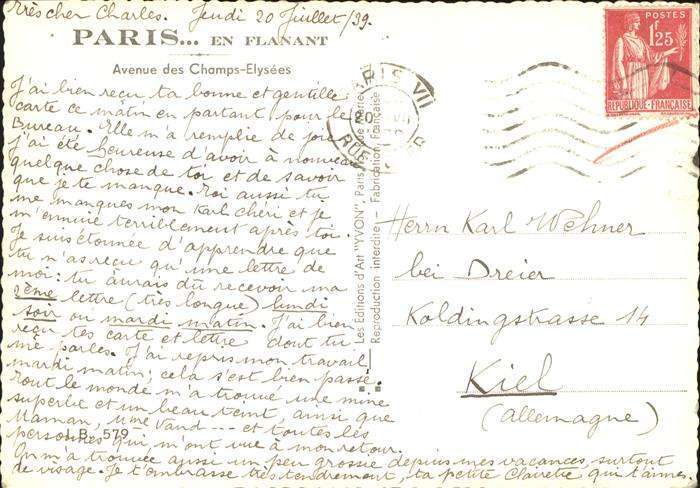 Très cher Charles. Jeudi 20 Juillet/39.
PARIS... EN FLANANT
Avenue des Champs-Elysées
J'ai bien reçu ta bonne et gentille
carte ce matin en partant pour le
Bureau. Elle m'a remplie de joie
J'ai été heureuse d'avoir à nouveau
quelque chose de toi et de savoir
que je te manque. Toi aussi tu
me manques mon Karl chéri et je
m'ennuie terriblement après toi.
Je suis étonnée d'apprendre que
tu n'as reçu qu'une lettre de
moi: tu aurais dû recevoir ma
2ème lettre (très longue) lundi
soir ou mardi matin. J'ai bien
reçu tes carte et lettre dont tu
me parles. J'ai repris mon travail
mardi matin; cela s'est bien passé.
Tout le monde m'a trouvé une mine
superbe et un beau teint, ainsi que
Maman, une vend--- et toutes les
personnes qui m'ont vue à mon retour.
I.B. 579
On m'a trouvée aussi un peu grossie depuis mes vacances, surtout
de visage. Je t'embrasse très tendrement, ta petite Clairette qui t'aime.
Les Editions d'Art "YVON", Paris
Reproduction interdite - Fabrication Française
PARIS VII
20
POSTES
1F25
REPUBLIQUE-FRANÇAISE
Herrn Karl Wehner
bei Dreier
Koldingstrasse 14
Kiel
(allemagne)